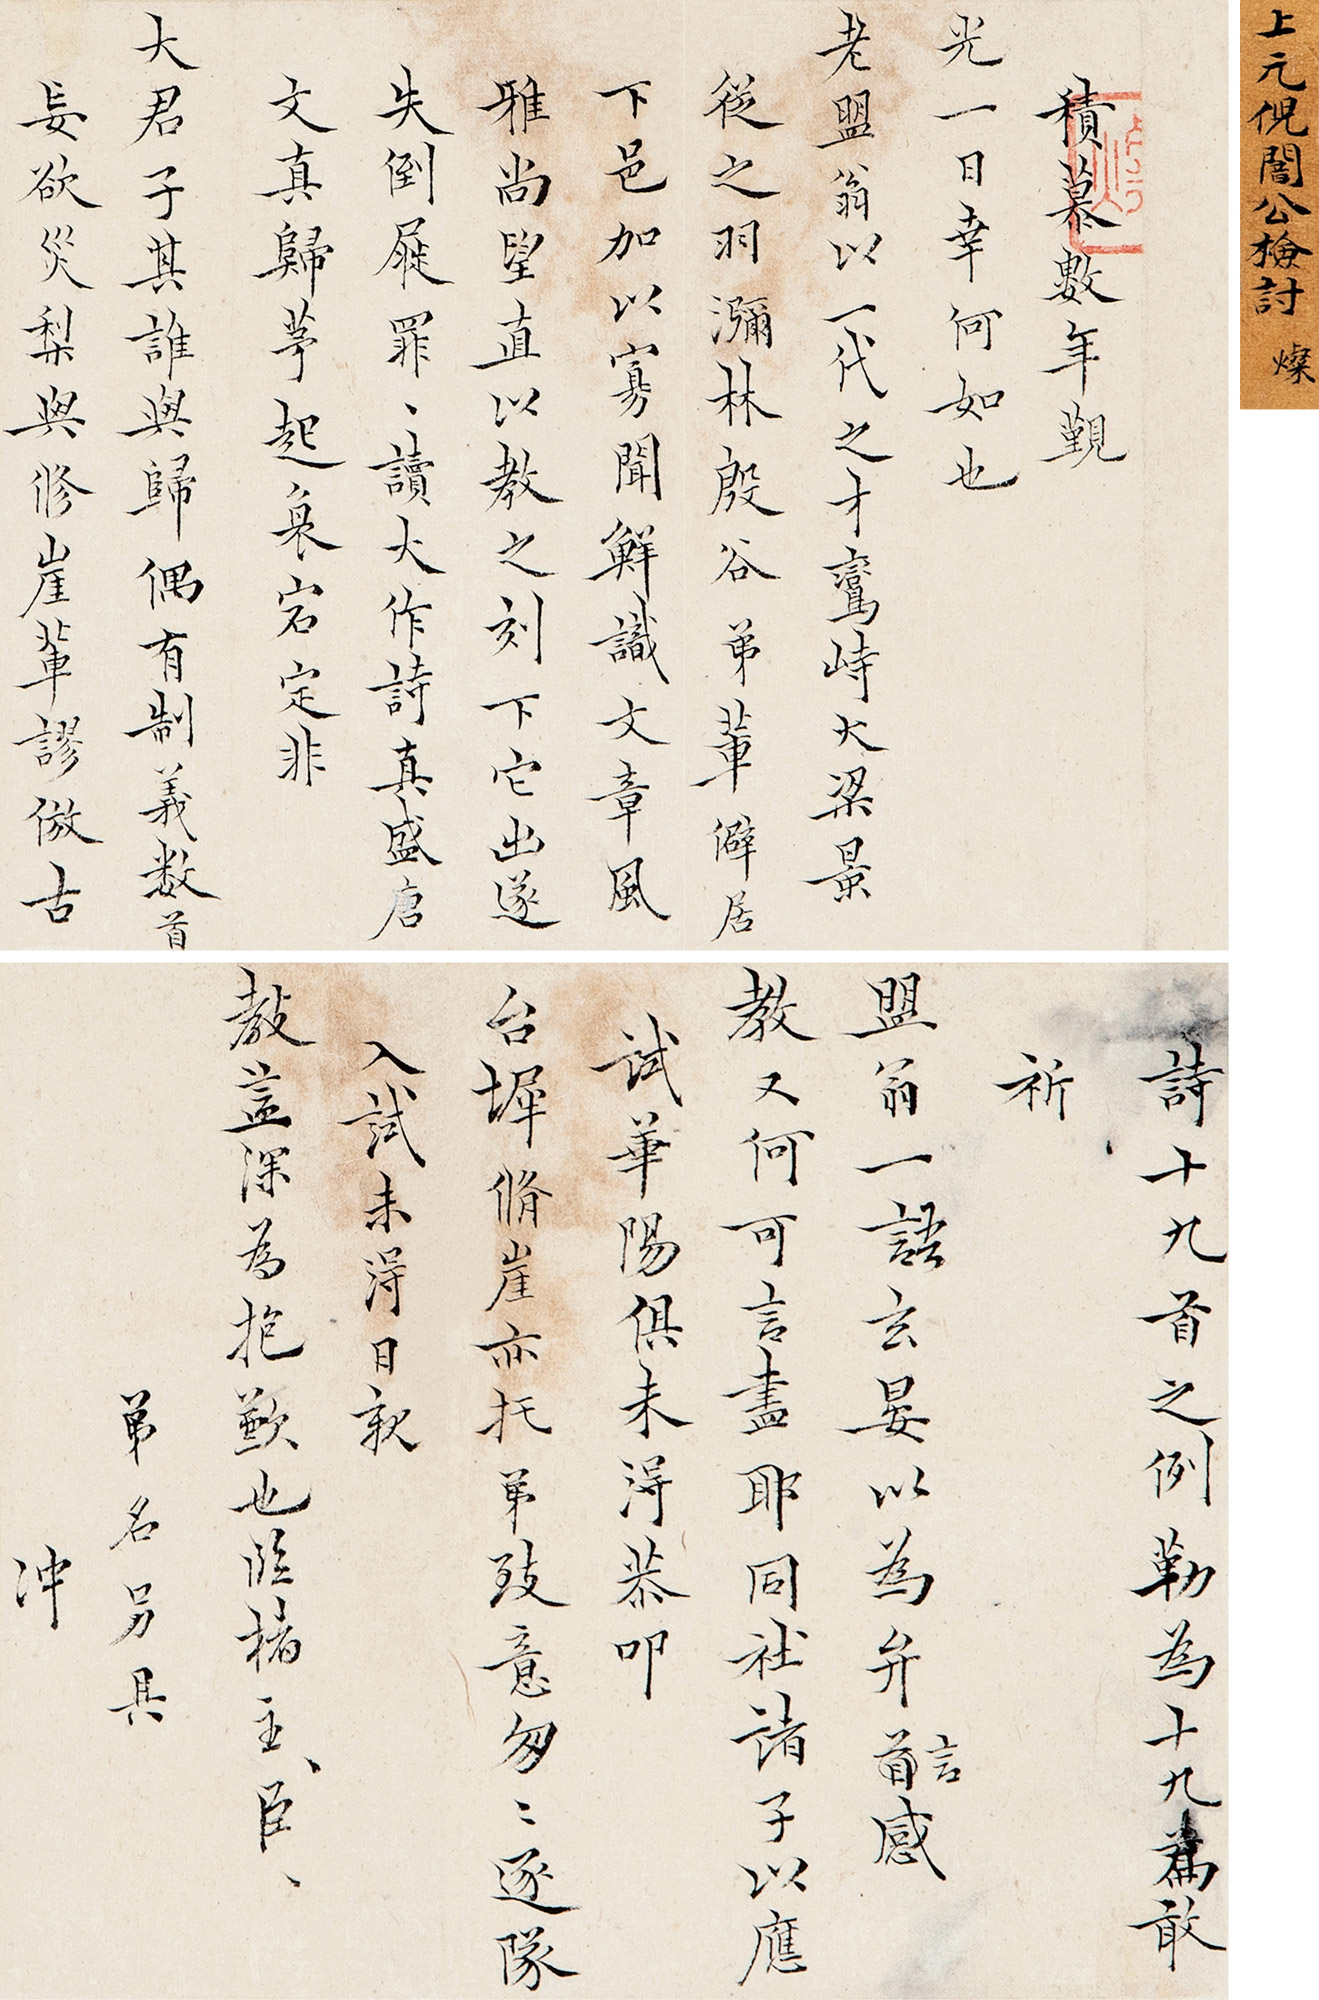 上元倪闇公檢討 燦
積慕數年覲
光一日幸何如也
老盟翁以一代之才鸞峙大梁景
從之羽瀰林殷谷弟輩僻居
下邑加以寡聞鮮識文章風
雅尚望直以教之刻下它出遂
失倒屣罪〻讀大作詩真盛唐
文真歸茅起衰宕定非
大君子其誰與歸偶有制義数首
妄欲災梨與修崖輩謬倣古
詩十九首之例勒為十九篇敢
祈
盟翁一語玄晏以為弁首言感
教又何可言盡耶同社諸子以應
試華陽俱未得恭叩
台墀脩崖亦托弟致意匆〻逐隊
入試未得日親
教益深為抱歉也臨楮主、臣、
弟名另具
冲